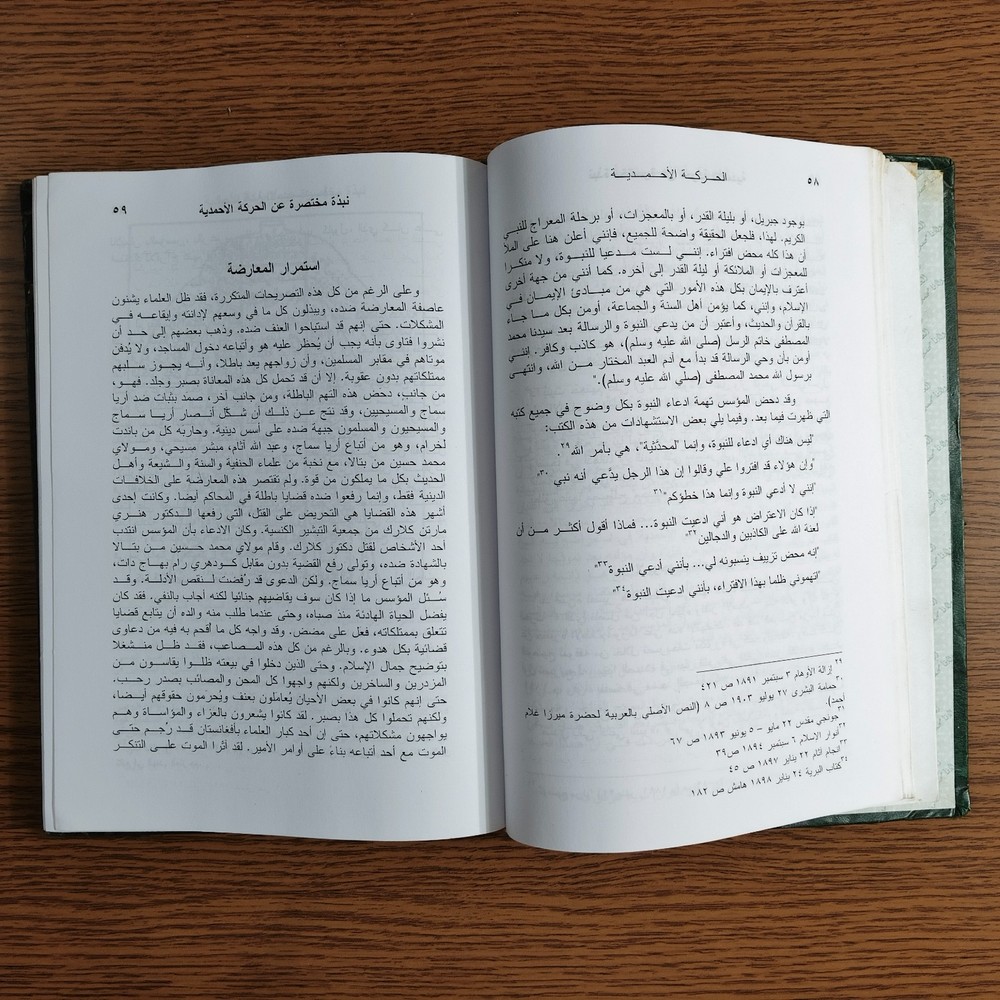 الحركـــة الأحـــمـــديـــة
٥٨
بوجود جبريل، أو بليلة القدر، أو بالمعجزات، أو برحلة المعراج للنبي
الكريم. لهذا، فلجعل الحقيقة واضحة للجميع، فإنني أعلن هنا على الملأ
أن هذا كله محض افتراء. إنـنـي لــســت مــدعيا للنبـوة، ولا منكـرا
للمعجزات أو الملائكة أو ليلة القدر إلى آخره. كما أنني من جهة أخرى
أعترف بالإيمان بكل هذه الأمور التي هي من مبـادئ الإيمـان فـي
الإسلام، وإنني، كما يؤمن أهل السنة والجماعة، أومن بكـل مـا جـاء
بالقرآن والحديث، وأعتبر أن من يدعي النبوة والرسالة بعد سيدنا محمد
المصطفى خاتم الرسل (صلى الله عليه وسلم)، هو كاذب وكافر. إننـي
أومن بأن وحي الرسالة قد بدأ مع آدم العبد المختار مـن الله، وانتهـى
برسول الله محمد المصطفى (صلى الله عليه وسلم)."
وقد دحض المؤسس تهمة ادعاء النبوة بكل وضوح في جميع كتبه
التي ظهرت فيما بعد. وفيما يلي بعض الاستشهادات من هذه الكتب:
"ليس هناك أي ادعاء للنبوة، وإنما "لمحدثية"، هي بأمر الله"٢٩.
"وإن هؤلاء قد افتروا علي وقالوا إن هذا الرجل يدَّعي أنه نبي"٣٠
"إنني لا أدعي النبوة وإنما هذا خطؤكم"٣١
"إذا كان الاعتراض هو أني ادعيت النبوة... فماذا أقول أكثـر مـن أن
لعنة الله على الكاذبين والدجالين"٣٢
"إنه محض تزييف ينسبونه لي... بأنني أدعي النبوة"٣٣
"اتهموني ظلما بهذا الافتراء، بأنني ادعيت النبوة"٣٤
٢٩ إزالة الأوهام ٣ سبتمبر ١٨٩١ ص ٤٢١
٣٠ حمامة البشرى ٢٧ يوليو ١٩٠٣ ص ٨ (النص الأصلي بالعربية لحضرة ميرزا غلام
أحمد).
٣١ جونجي مقدس ٢٢ مايو – ٥ يونيو ١٨٩٣ ص ٦٧
٣٢ أنوار الاسلام ٦ سبتمبر ١٨٩٤ ص٣٩
٣٣ انجام آثام ٢٢ يناير ١٨٩٧ ص ٤٥
٣٤ كتاب البرية ٢٤ يناير ١٨٩٨ هامش ص ١٨٢
نبذة مختصرة عن الحركة الأحمدية
٥٩
استمرار المعارضة
وعلى الرغم من كل هذه التصريحات المتكررة، فقد ظل العلماء يشنون
عاصفة المعارضة ضده، ويبذلون كل ما في وسعهم لإدانته وإيقاعـه فـي
المشكلات. حتى إنهم قد استباحوا العنف ضده. وذهب بعضهم إلى حـد أن
نشروا فتاوى بأنه يجب أن يُحظر عليه هو وأتباعه دخول المساجد، ولا يُدفن
موتاهم في مقابر المسلمين، وأن زواجهم يعد باطلا، وأنـه يجـوز سـلبهم
ممتلكاتهم بدون عقوبة. إلا أن قد تحمل كل هذه المعاناة بصبر وجلد. فهـو،
من جانب، دحض هذه التهم الباطلة، ومن جانب آخر، صمد بثبات ضد آريا
سماج والمسيحيين، وقد نتج عن ذلـك أن شـكَّل أنـصار آريـا سـماج
والمسيحيون والمسلمون جبهة ضده على أسس دينية. وحاربه كل من باندت
لخرام، وهو من أتباع آريا سماج، وعبد الله آثام، مبشر مسيحي، ومـولاي
محمد حسين من بتالا، مع نخبة من علماء الحنفية والسنة والشيعة وأهـل
الحديث بكل ما يملكون من قوة. ولم تقتصر هذه المعارضة على الخلافـات
الدينية فقط، وإنما رفعوا ضده قضايا باطلة في المحاكم أيضا. وكانت إحدى
أشهر هذه القضايا هي التحريض على القتل، التي رفعها الـدكتور هنـري
مارتن كلارك من جمعية التبشير الكنسية. وكان الادعاء بأن المؤسس انتدب
أحد الأشخاص لقتل دكتور كلارك. وقام مولاي محمد حسـين مـن بتـالا
بالشهادة ضده، وتولى رفع القضية بدون مقابل كـودهري رام بهـاج دات،
وهو من أتباع آريا سماج. ولكن الدعوى قد رُفضت لنـقص الأدلـة. وقـد
سُـئل المؤسس ما إذا كان سوف يقاضيهم جنائيا لكنه أجاب بالنفي. فقد كان
يفضل الحياة الهادئة منذ صباه، وحتى عندما طلب منه والده أن يتابع قضايا
تتعلق بممتلكاته، فعل على مضض. وقد واجه كل ما أقحم به فيه من دعاوى
قضائية بكل هدوء. وبالرغم من كل هذه المـصاعب، فقـد ظـل منـشغلا
بتوضيح جمال الإسلام. وحتى الذين دخلوا في بيعته ظلـوا يقاسـون مـن
المزدرين والساخرين ولكنهم واجهوا كل المحن والمصائب بصدر رحـب.
حتى إنهم كانوا في بعض الأحيان يُعاملون بعنف ويُحرَمون حقوقهم أيضـا،
ولكنهم تحملوا كل هذا بصبر. لقد كانوا يشعرون بالعزاء والمؤاسـاة وهـم
يواجهون مشكلاتهم، حتى إن أحد كبار العلماء بأفغانستان قـد رُجـم حتـى
الموت مع أحد أتباعه بناءً على أوامر الأمير. لقد آثرا الموت علـى التنكـر